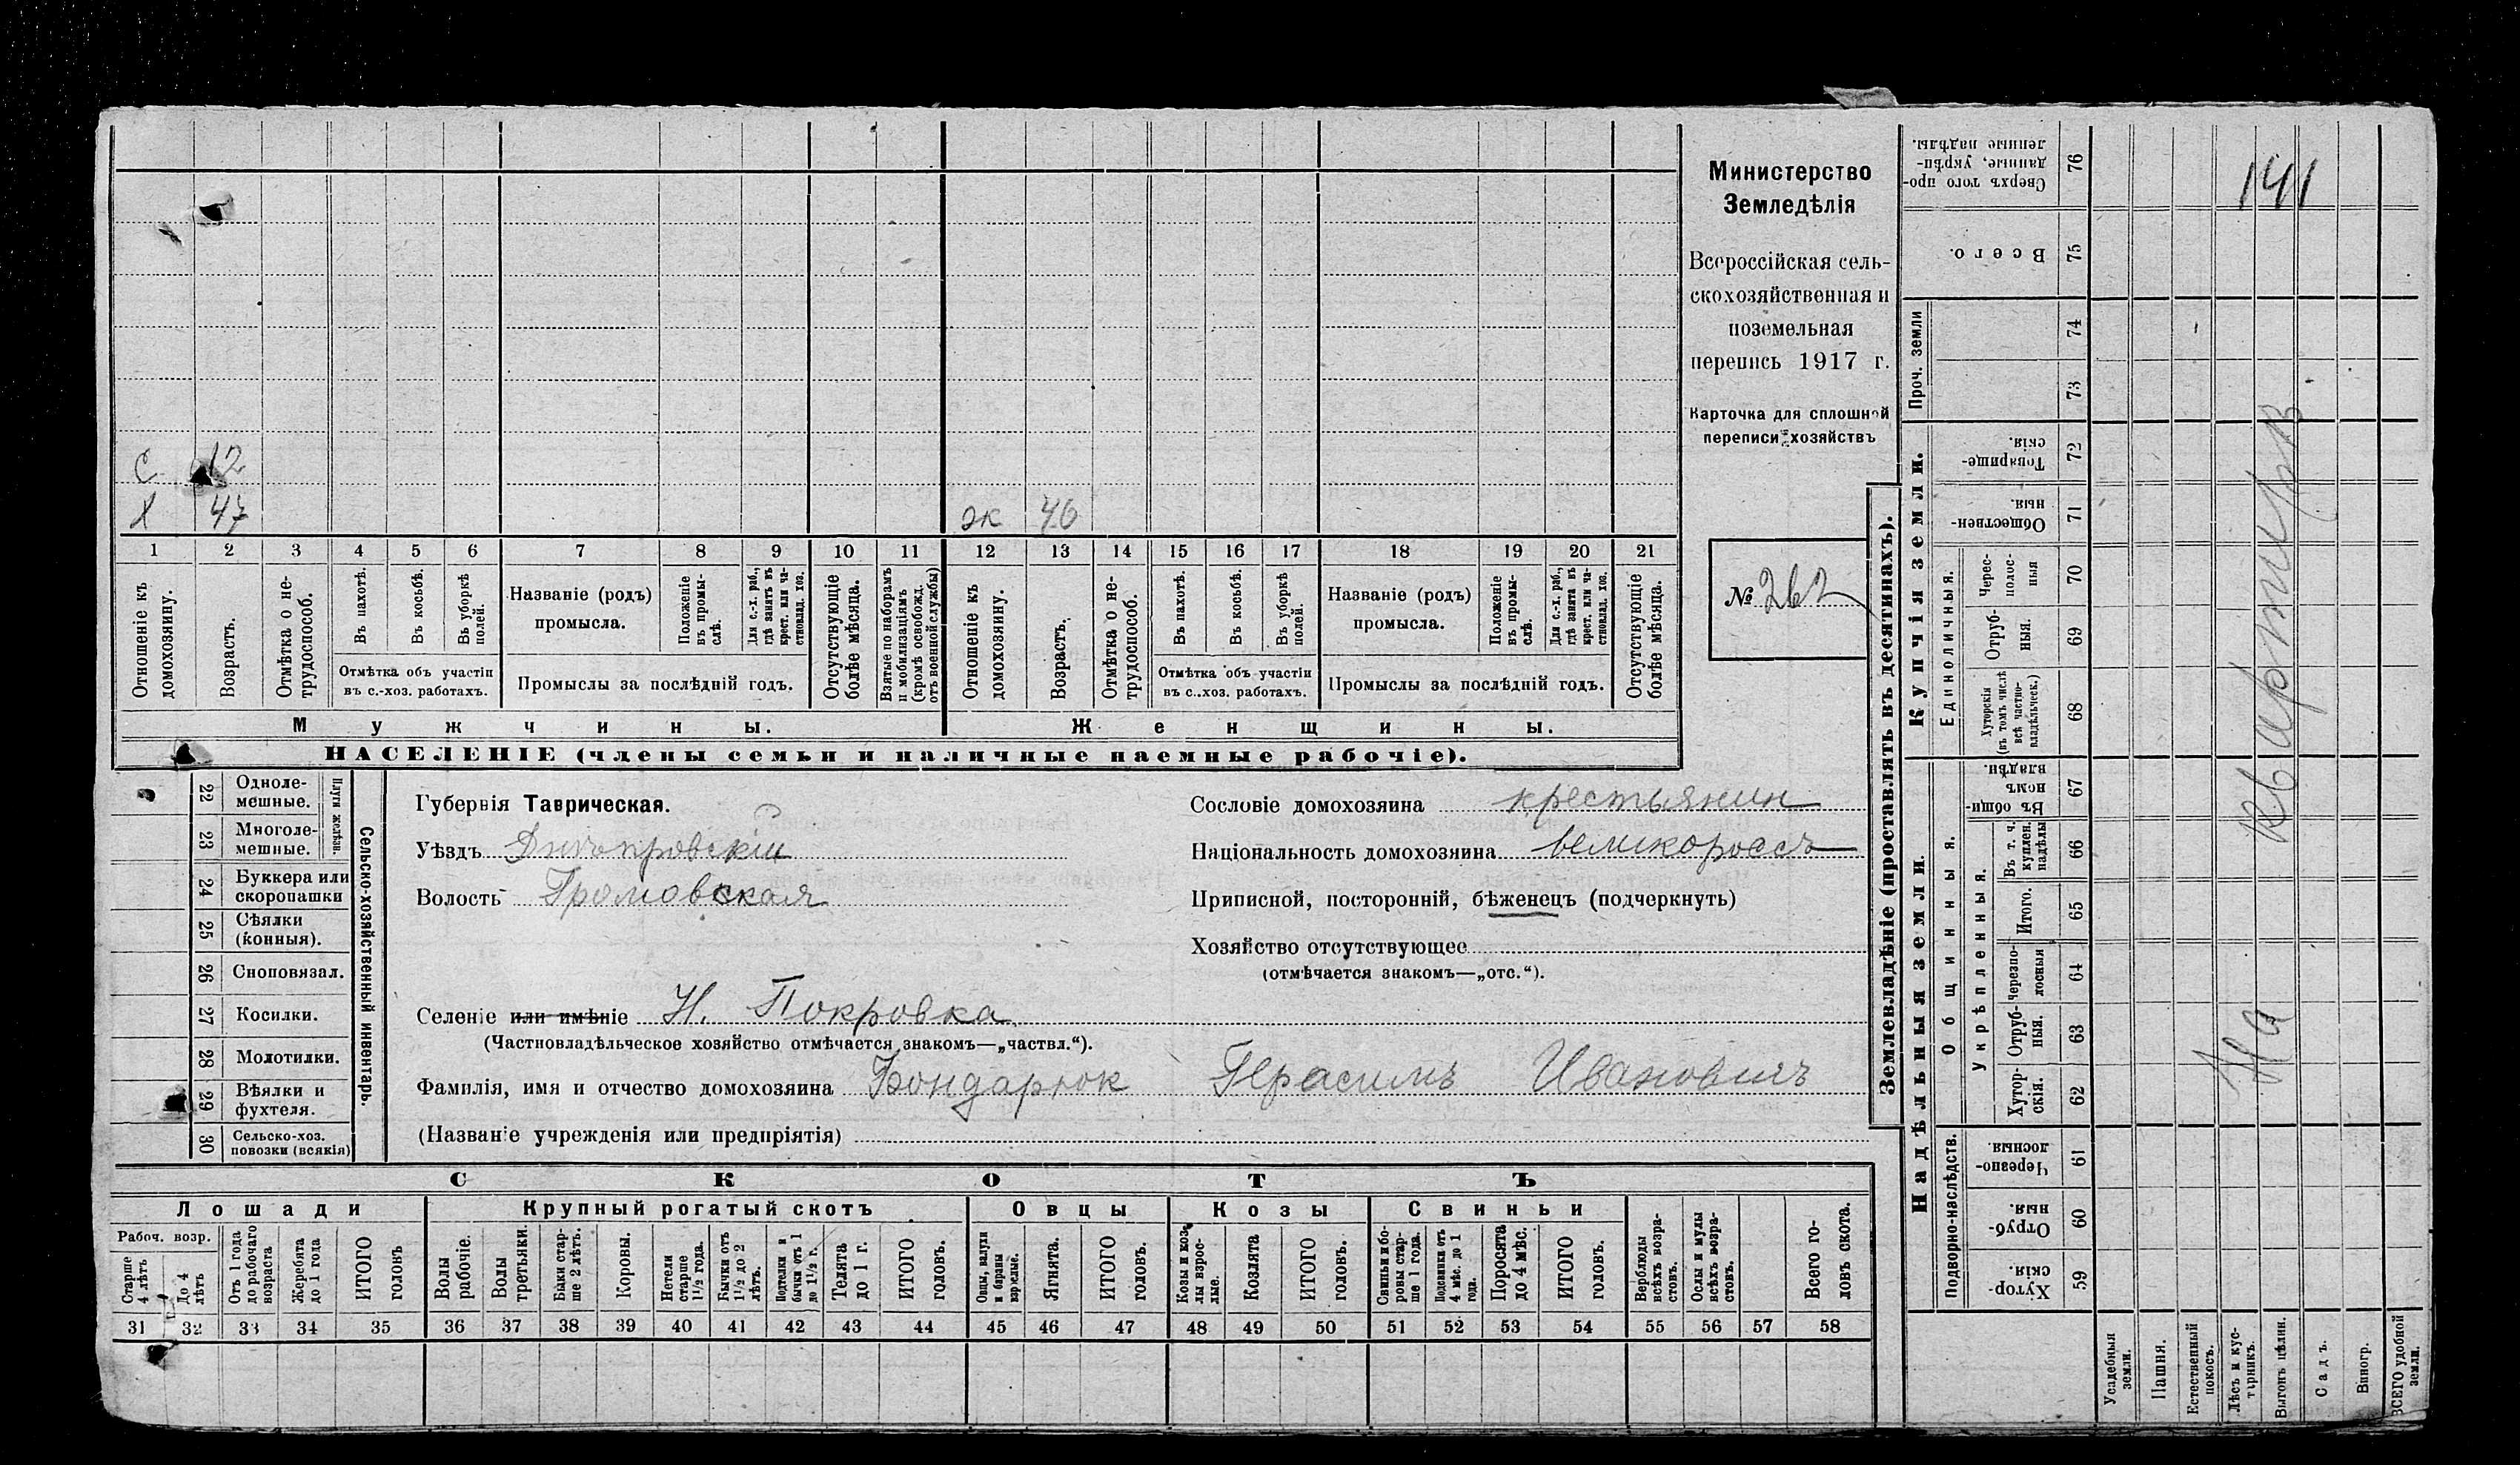 Министерство
Земледѣлія
Всероссійская сель-
скохозяйственная и
поземельная
перепись 1917 г.
Карточка для сплошной
переписи хозяйствъ
№ 262
С 12
Х 47
ж 46
1 2 3 4 5 6 7 8 9 10 11 12 13 14 15 16 17 18 19 20 21
Отношеніе къ домохозяину.
Возрастъ.
Отмѣтка о не-трудоспособ.
Въ пахотѣ.
Въ косьбѣ.
Въ уборкѣ полей.
Отмѣтка объ участіи
въ с.-хоз. работахъ.
Названіе (родъ)
промысла.
Положеніе въ промы-слѣ.
Для с.-х. раб., гдѣ занятъ въ крест. или ча-стновлад. хоз.
Промыслы за послѣдній годъ.
Отсутствующіе болѣе мѣсяца.
Взятые по наборамъ и мобилизаціямъ (кромѣ освобожд. отъ военной службы)
Отношеніе къ домохозяину.
Возрастъ.
Отмѣтка о не-трудоспособ.
Въ пахотѣ.
Въ косьбѣ.
Въ уборкѣ полей.
Отмѣтка объ участіи
въ с.-хоз. работахъ.
Названіе (родъ)
промысла.
Положеніе въ промы-слѣ.
Для с.-х. раб., гдѣ занята въ крест. или ча-стновлад. хоз.
Промыслы за послѣдній годъ.
Отсутствующіе болѣе мѣсяца.
Мужчины.
Женщины.
НАСЕЛЕНІЕ (члены семьи и наличные наемные рабочіе).
22 Одноле-мешные.
23 Многоле-мешные.
Плуги желѣзн.
24 Буккера или скоропашки
25 Сѣялки (конныя).
26 Сноповязал.
27 Косилки.
28 Молотилки.
29 Вѣялки и фухтеля.
30 Сельско-хоз. повозки (всякія)
Сельско-хозяйственный инвентарь.
Губернія Таврическая.
Уѣздъ Днѣпровскій
Волость Громовская
Сословіе домохозяина крестьянин
Національность домохозяина великороссъ
Приписной, посторонній, бѣженецъ (подчеркнуть)
Хозяйство отсутствующее
(отмѣчается знакомъ—„отс.“).
Селеніе или имѣніе Н. Покровка
(Частновладѣльческое хозяйство отмѣчается знакомъ—„частвл.“).
Фамилія, имя и отчество домохозяина Бондарюк Герасимъ Ивановичъ
(Названіе учрежденія или предпріятія)
СКОТЪ
Лошади
Крупный рогатый скотъ
Овцы
Козы
Свиньи
Рабоч. возр.
Старше 4 лѣтъ
До 4 лѣтъ
Отъ 1 года до рабочаго возраста
Жеребята до 1 года
ИТОГО головъ
Волы рабочіе.
Волы третьяки.
Быки стар-ше 2 лѣтъ.
Коровы.
Нетели старше 1½ года.
Бычки отъ 1½ до 2 лѣтъ.
Подтелки и бычки отъ 1 до 1½ г.
Телята до 1 г.
ИТОГО головъ.
Овцы, валухи и бараны взрослые.
Ягнята.
ИТОГО головъ.
Козы и коз-лы взрос-лые.
Козлята
ИТОГО головъ.
Свиньи и бо-ровы стар-ше 1 года.
Подсвинки отъ 4 мѣс. до 1 года.
Поросята до 4 мѣс.
ИТОГО головъ.
Верблюды всѣхъ возра-стовъ.
Ослы и мулы всѣхъ возра-стовъ.
Всего го-ловъ скота.
31 32 33 34 35 36 37 38 39 40 41 42 43 44 45 46 47 48 49 50 51 52 53 54 55 56 57 58
Землевладѣніе (проставлять въ десятинахъ).
Купчія земли.
Надѣльныя земли.
Сверхъ того про-данные, укрѣп-ленные надѣлы. 76
Всего. 75
Проч. земли 74 73
Товарище-скія. 72
Обществен-ныя. 71
Единоличныя.
Черес-полос-ныя 70
Отруб-ныя. 69
Хуторскія (въ томъ числѣ всѣ частно-владѣльческ.) 68
Общинныя.
Въ общин-номъ владѣн. 67
Укрѣпленныя.
Въ т. ч. куплен. надѣлы 66
Итого. 65
Черезпо-лосныя 64
Отруб-ныя. 63
Хутор-скія. 62
Подворно-наслѣдств.
Черезпо-лосныя 61
Отруб-ныя. 60
Хутор-скія. 59
Усадебныя земли.
Пашня.
Естественный покосъ.
Лѣсъ и кус-тарникъ.
Выгонъ цѣлин.
Садъ.
Виногр.
ВСЕГО удобной земли.
141
На квартирѣ